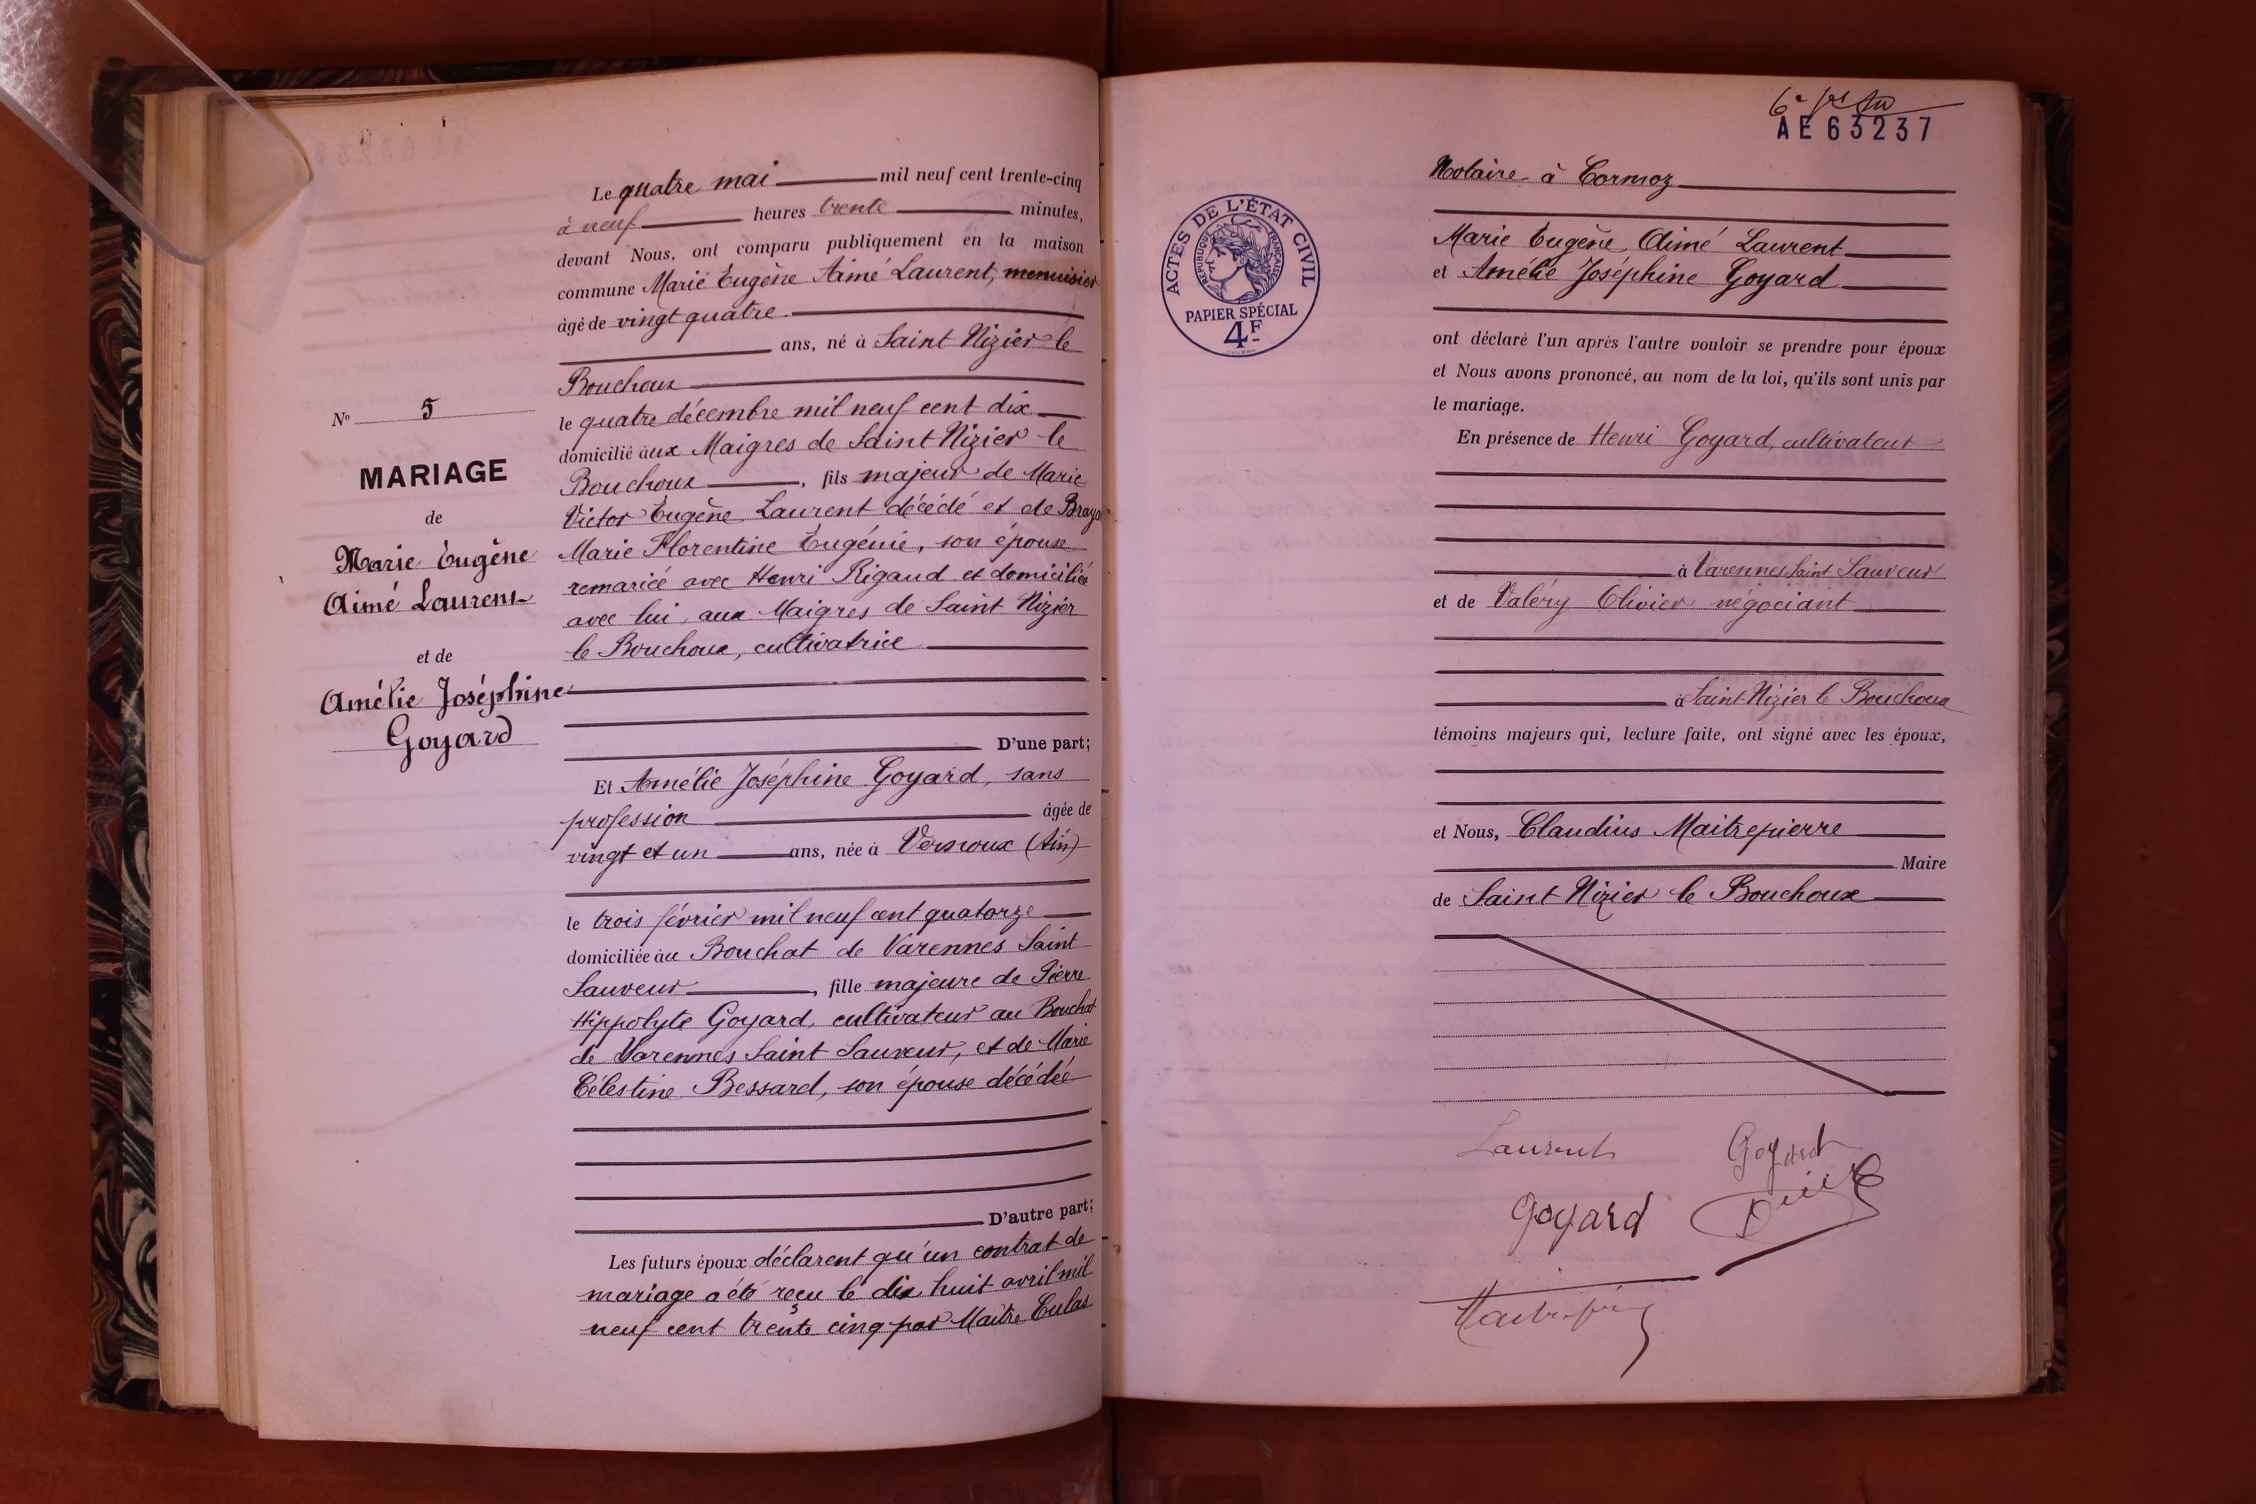 Le quatre mai mil neuf cent trente-cinq
à neuf heures trente minutes,
devant Nous, ont comparu publiquement en la maison
commune Marie Eugène Aimé Laurent, menuisier
âgé de vingt quatre
ans, né à Saint Nizier le
Bouchoux
le quatre décembre mil neuf cent dix
domicilié aux Maigres de Saint Nizier le
Bouchoux, fils majeur de Marie
Victor Eugène Laurent décédé et de
Marie Florentine Eugénie, son épouse
remariée avec Henri Rigaud et domiciliée
avec lui, aux Maigres de Saint Nizier
le Bouchoux, cultivatrice
D'une part;
Et Amélie Joséphine Goyard, sans
profession âgée de
vingt et un ans, née à Vescoux (Ain)
le trois février mil neuf cent quatorze
domiciliée au Bouchat de Varennes Saint
Sauveur, fille majeure de Pierre
Hippolyte Goyard, cultivateur au Bouchat
de Varennes Saint Sauveur, et de Marie
Célestine Bessard, son épouse décédée
D'autre part;
Les futurs époux déclarent qu'un contrat de
mariage a été reçu le dix huit avril mil
neuf cent trente cinq par Maître Culas
No 5
MARIAGE
de
Marie Eugène
Aimé Laurent
et de
Amélie Joséphine
Goyard
AE63237
ACTES DE L'ÉTAT CIVIL
RÉPUBLIQUE FRANÇAISE
PAPIER SPÉCIAL
4F
Notaire à Cormoz
Marie Eugène Aimé Laurent
et Amélie Joséphine Goyard
ont déclaré l'un après l'autre vouloir se prendre pour époux
et Nous avons prononcé, au nom de la loi, qu'ils sont unis par
le mariage.
En présence de Henri Goyard, cultivateur
à Varennes Saint Sauveur
et de Valéry Olivier négociant
à Saint Nizier le Bouchoux
témoins majeurs qui, lecture faite, ont signé avec les époux,
et Nous, Claudius Maitrepierre
Maire
de Saint Nizier le Bouchoux
Laurent Goyard
Goyard